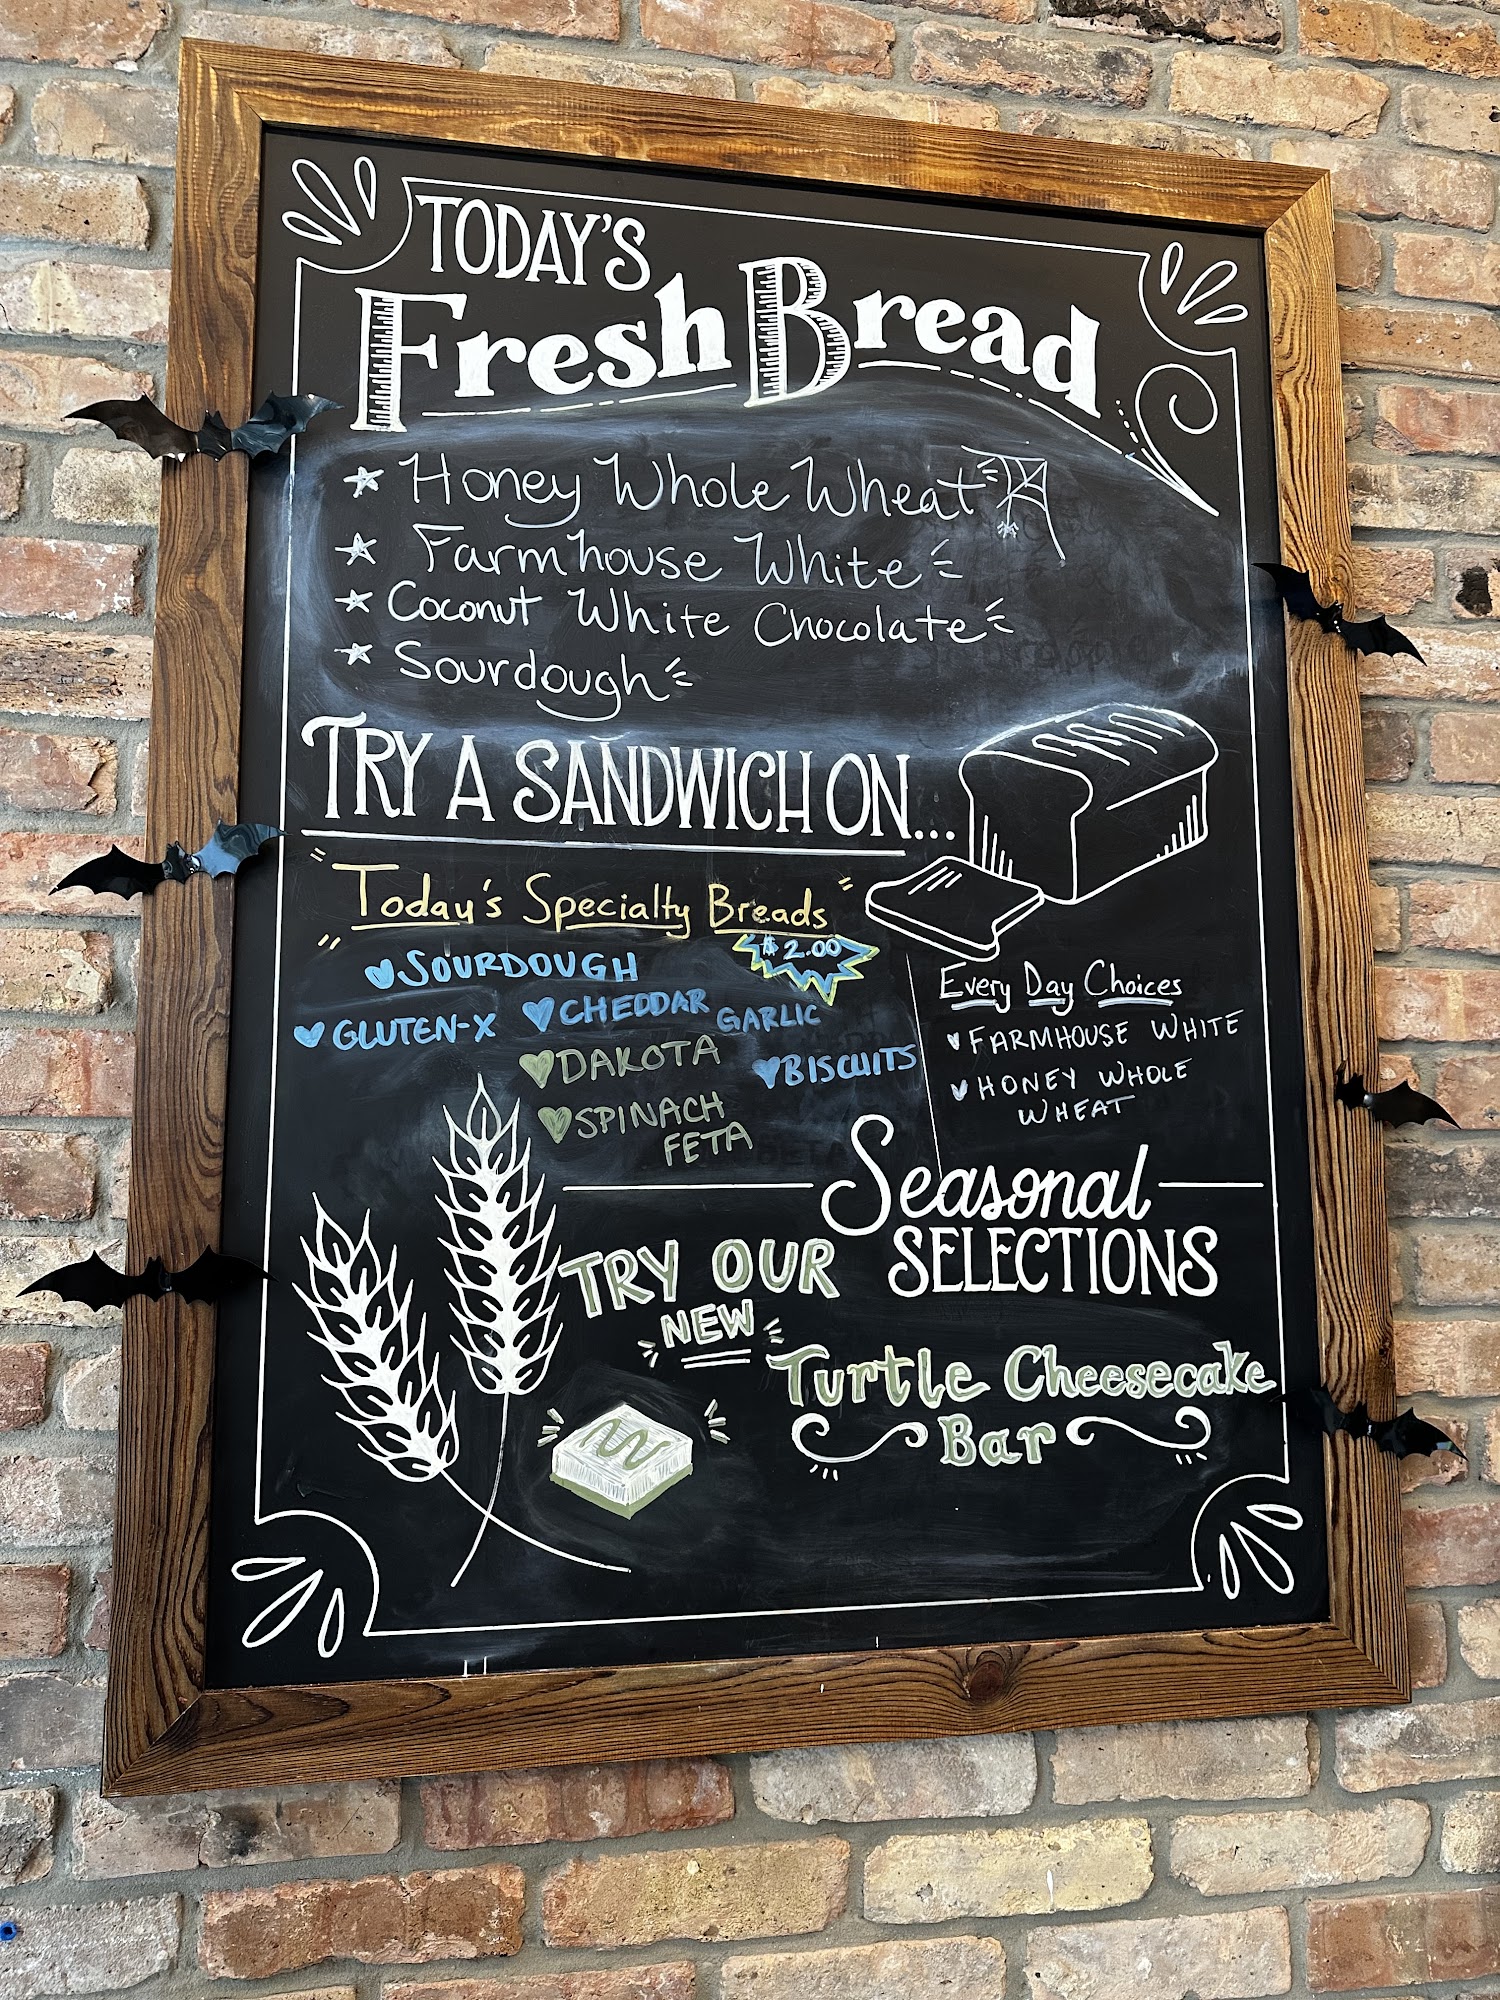 TODAY'S
Fresh Bread
Honey Whole Wheat
Farmhouse White
Coconut White Chocolate
Sourdough
TRY A SANDWICH ON...
"Today's Specialty Breads"
$2.00
SOURDOUGH
GLUTEN-X
CHEDDAR GARLIC
DAKOTA
BISCUITS
SPINACH
FETA
Every Day Choices
FARMHOUSE WHITE
HONEY WHOLE
WHEAT
Seasonal
SELECTIONS
TRY OUR
NEW
Turtle Cheesecake
Bar